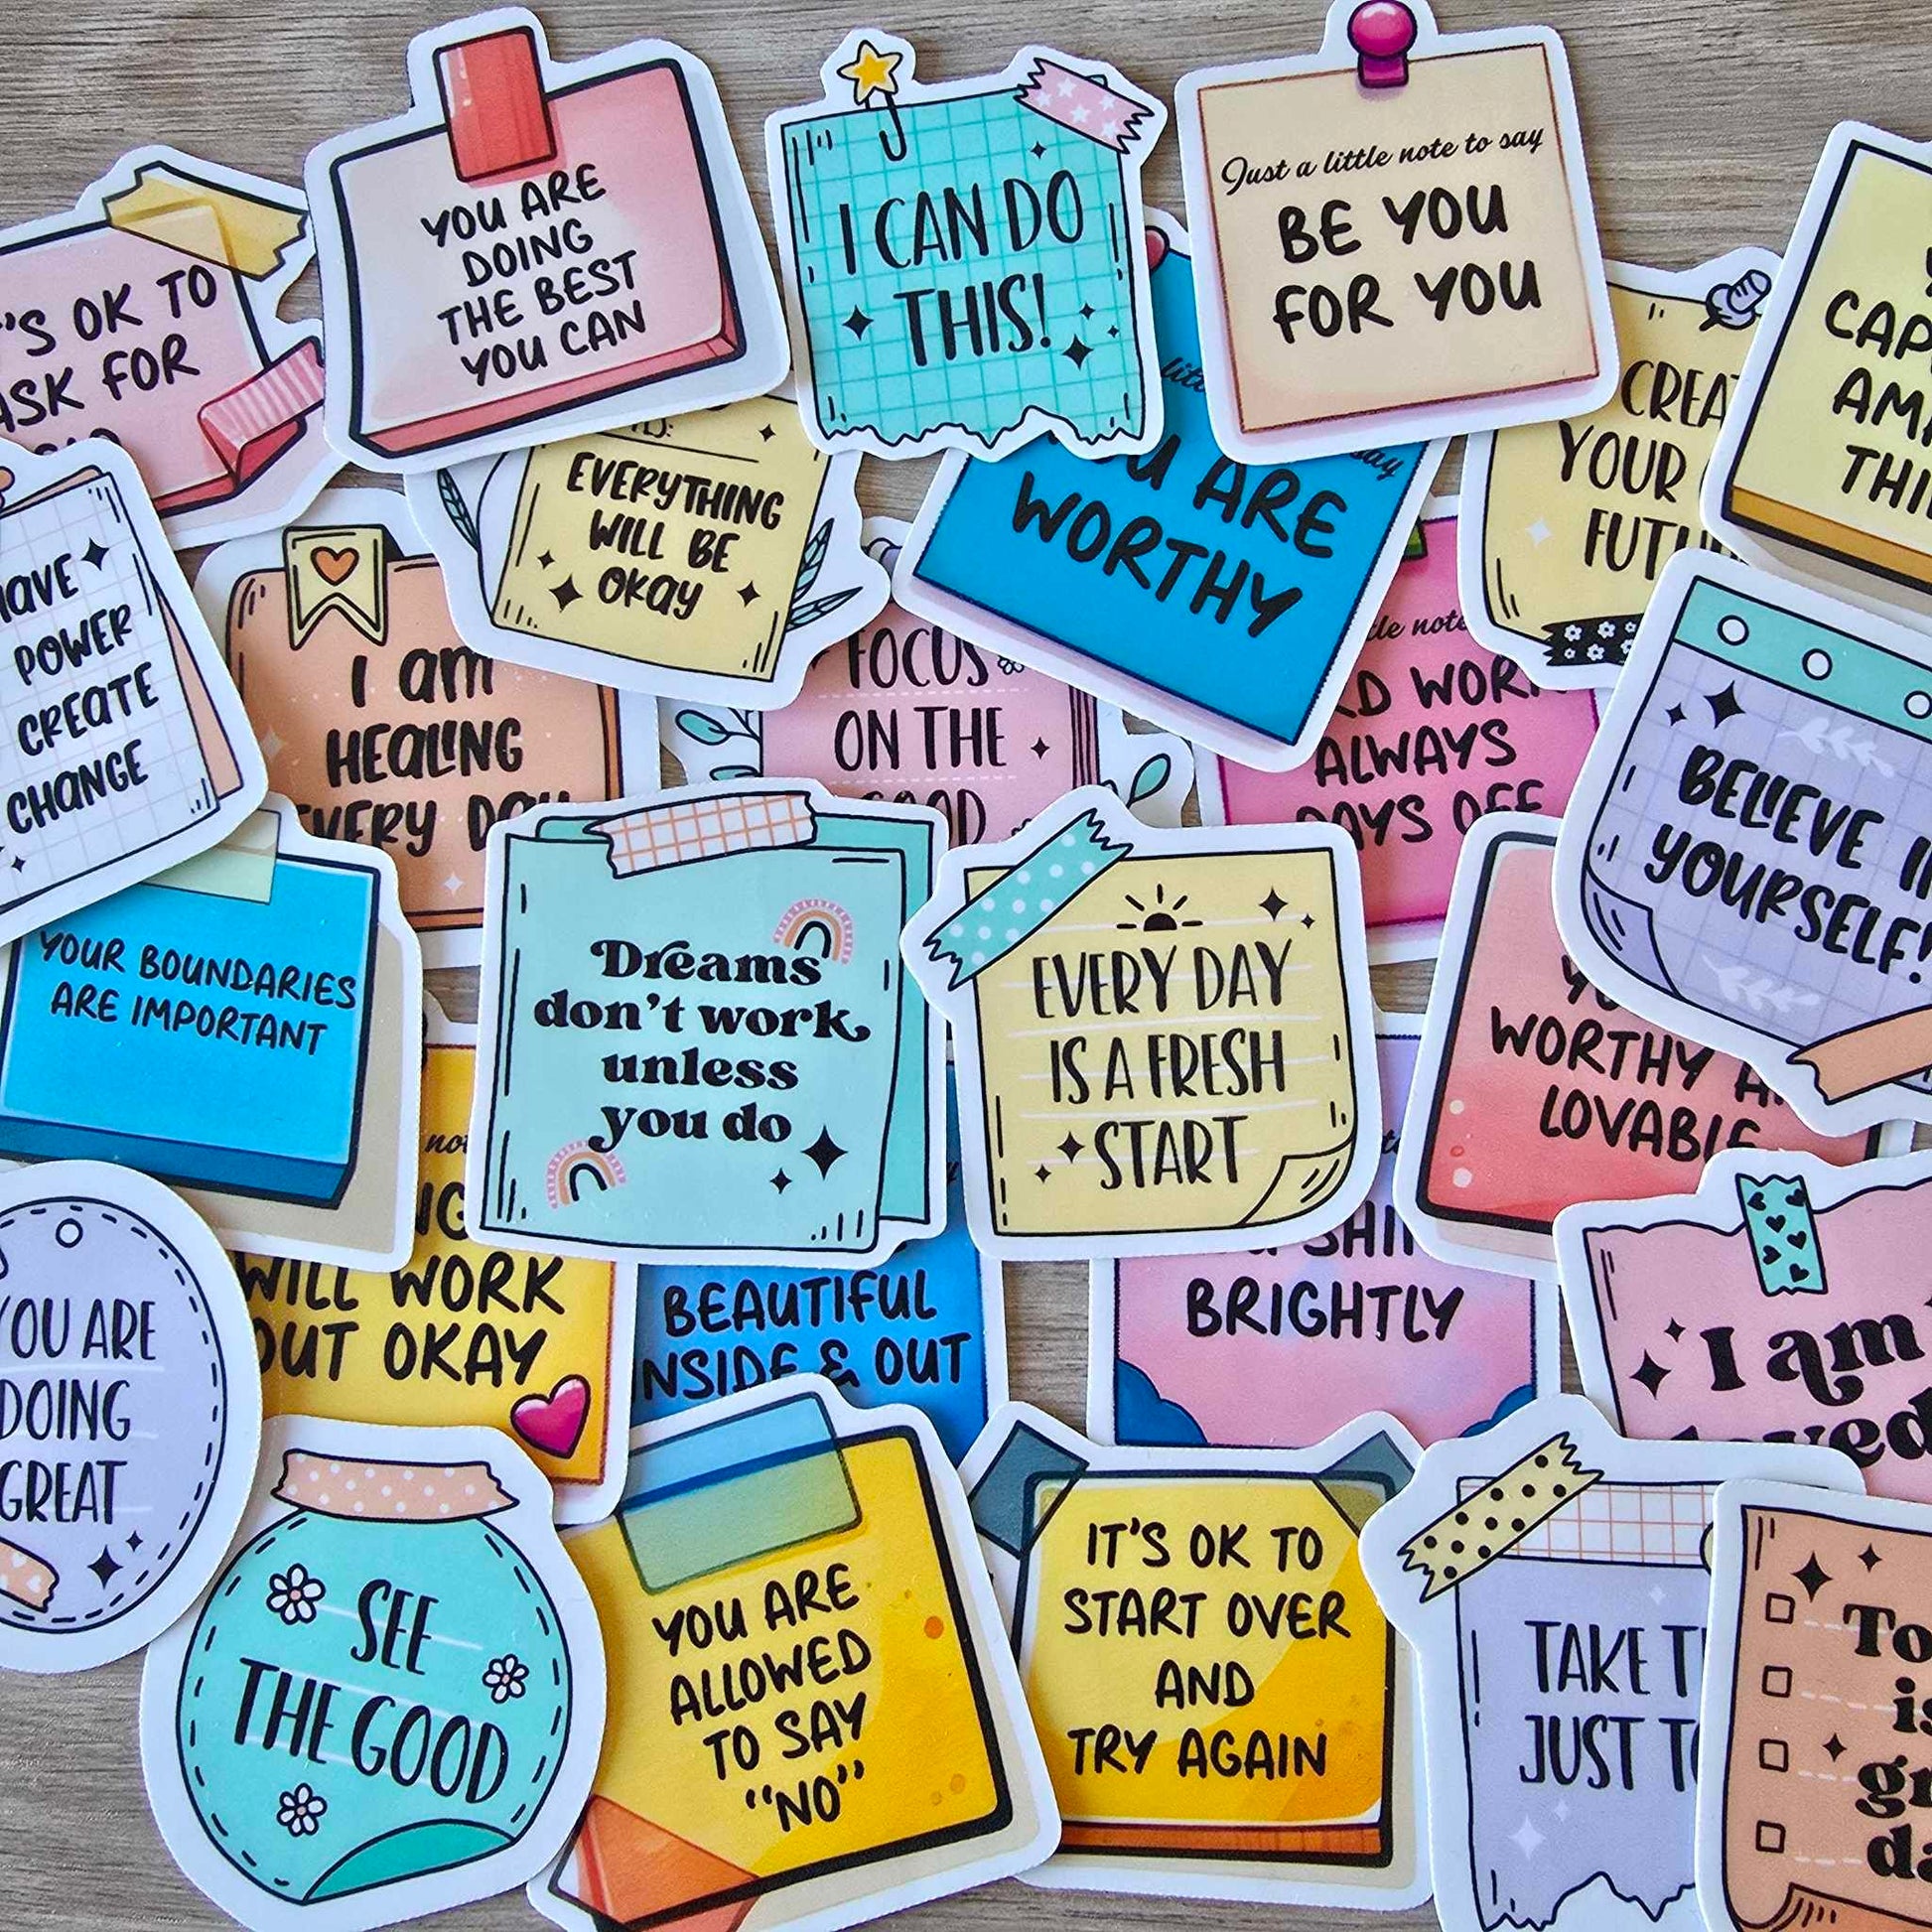 YOU ARE
DOING
THE BEST
YOU CAN
I CAN DO
THIS!
Just a little note to say
BE YOU
FOR YOU
'S OK TO
ASK FOR
CAP
AM
THI
CREA
YOUR
FUTU
EVERYTHING
WILL BE
OKAY
ARE
WORTHY
HAVE
POWER
CREATE
CHANGE
I am
HEALING
EVERY DAY
FOCUS
ON THE
GOOD
note
WORK
ALWAYS
PAYS OFF
BELIEVE IN
YOURSELF!
YOUR BOUNDARIES
ARE IMPORTANT
Dreams
don't work
unless
you do
EVERY DAY
IS A FRESH
START
WORTHY A
LOVABLE
WILL WORK
OUT OKAY
BEAUTIFUL
INSIDE & OUT
SHI
BRIGHTLY
I am
loved
YOU ARE
DOING
GREAT
SEE
THE GOOD
YOU ARE
ALLOWED
TO SAY
"NO"
IT'S OK TO
START OVER
AND
TRY AGAIN
TAKE T
JUST TO
To
i
gr
da